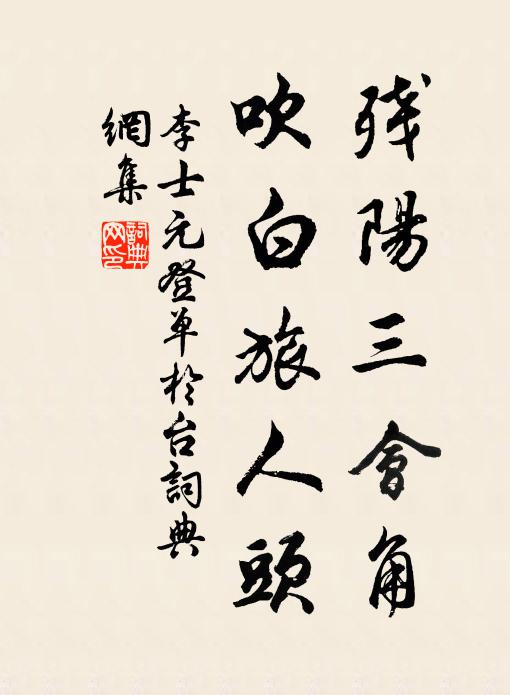 残陽三會角
吹白旅人頭
李士元登单於台詞典
網集
詞典网印